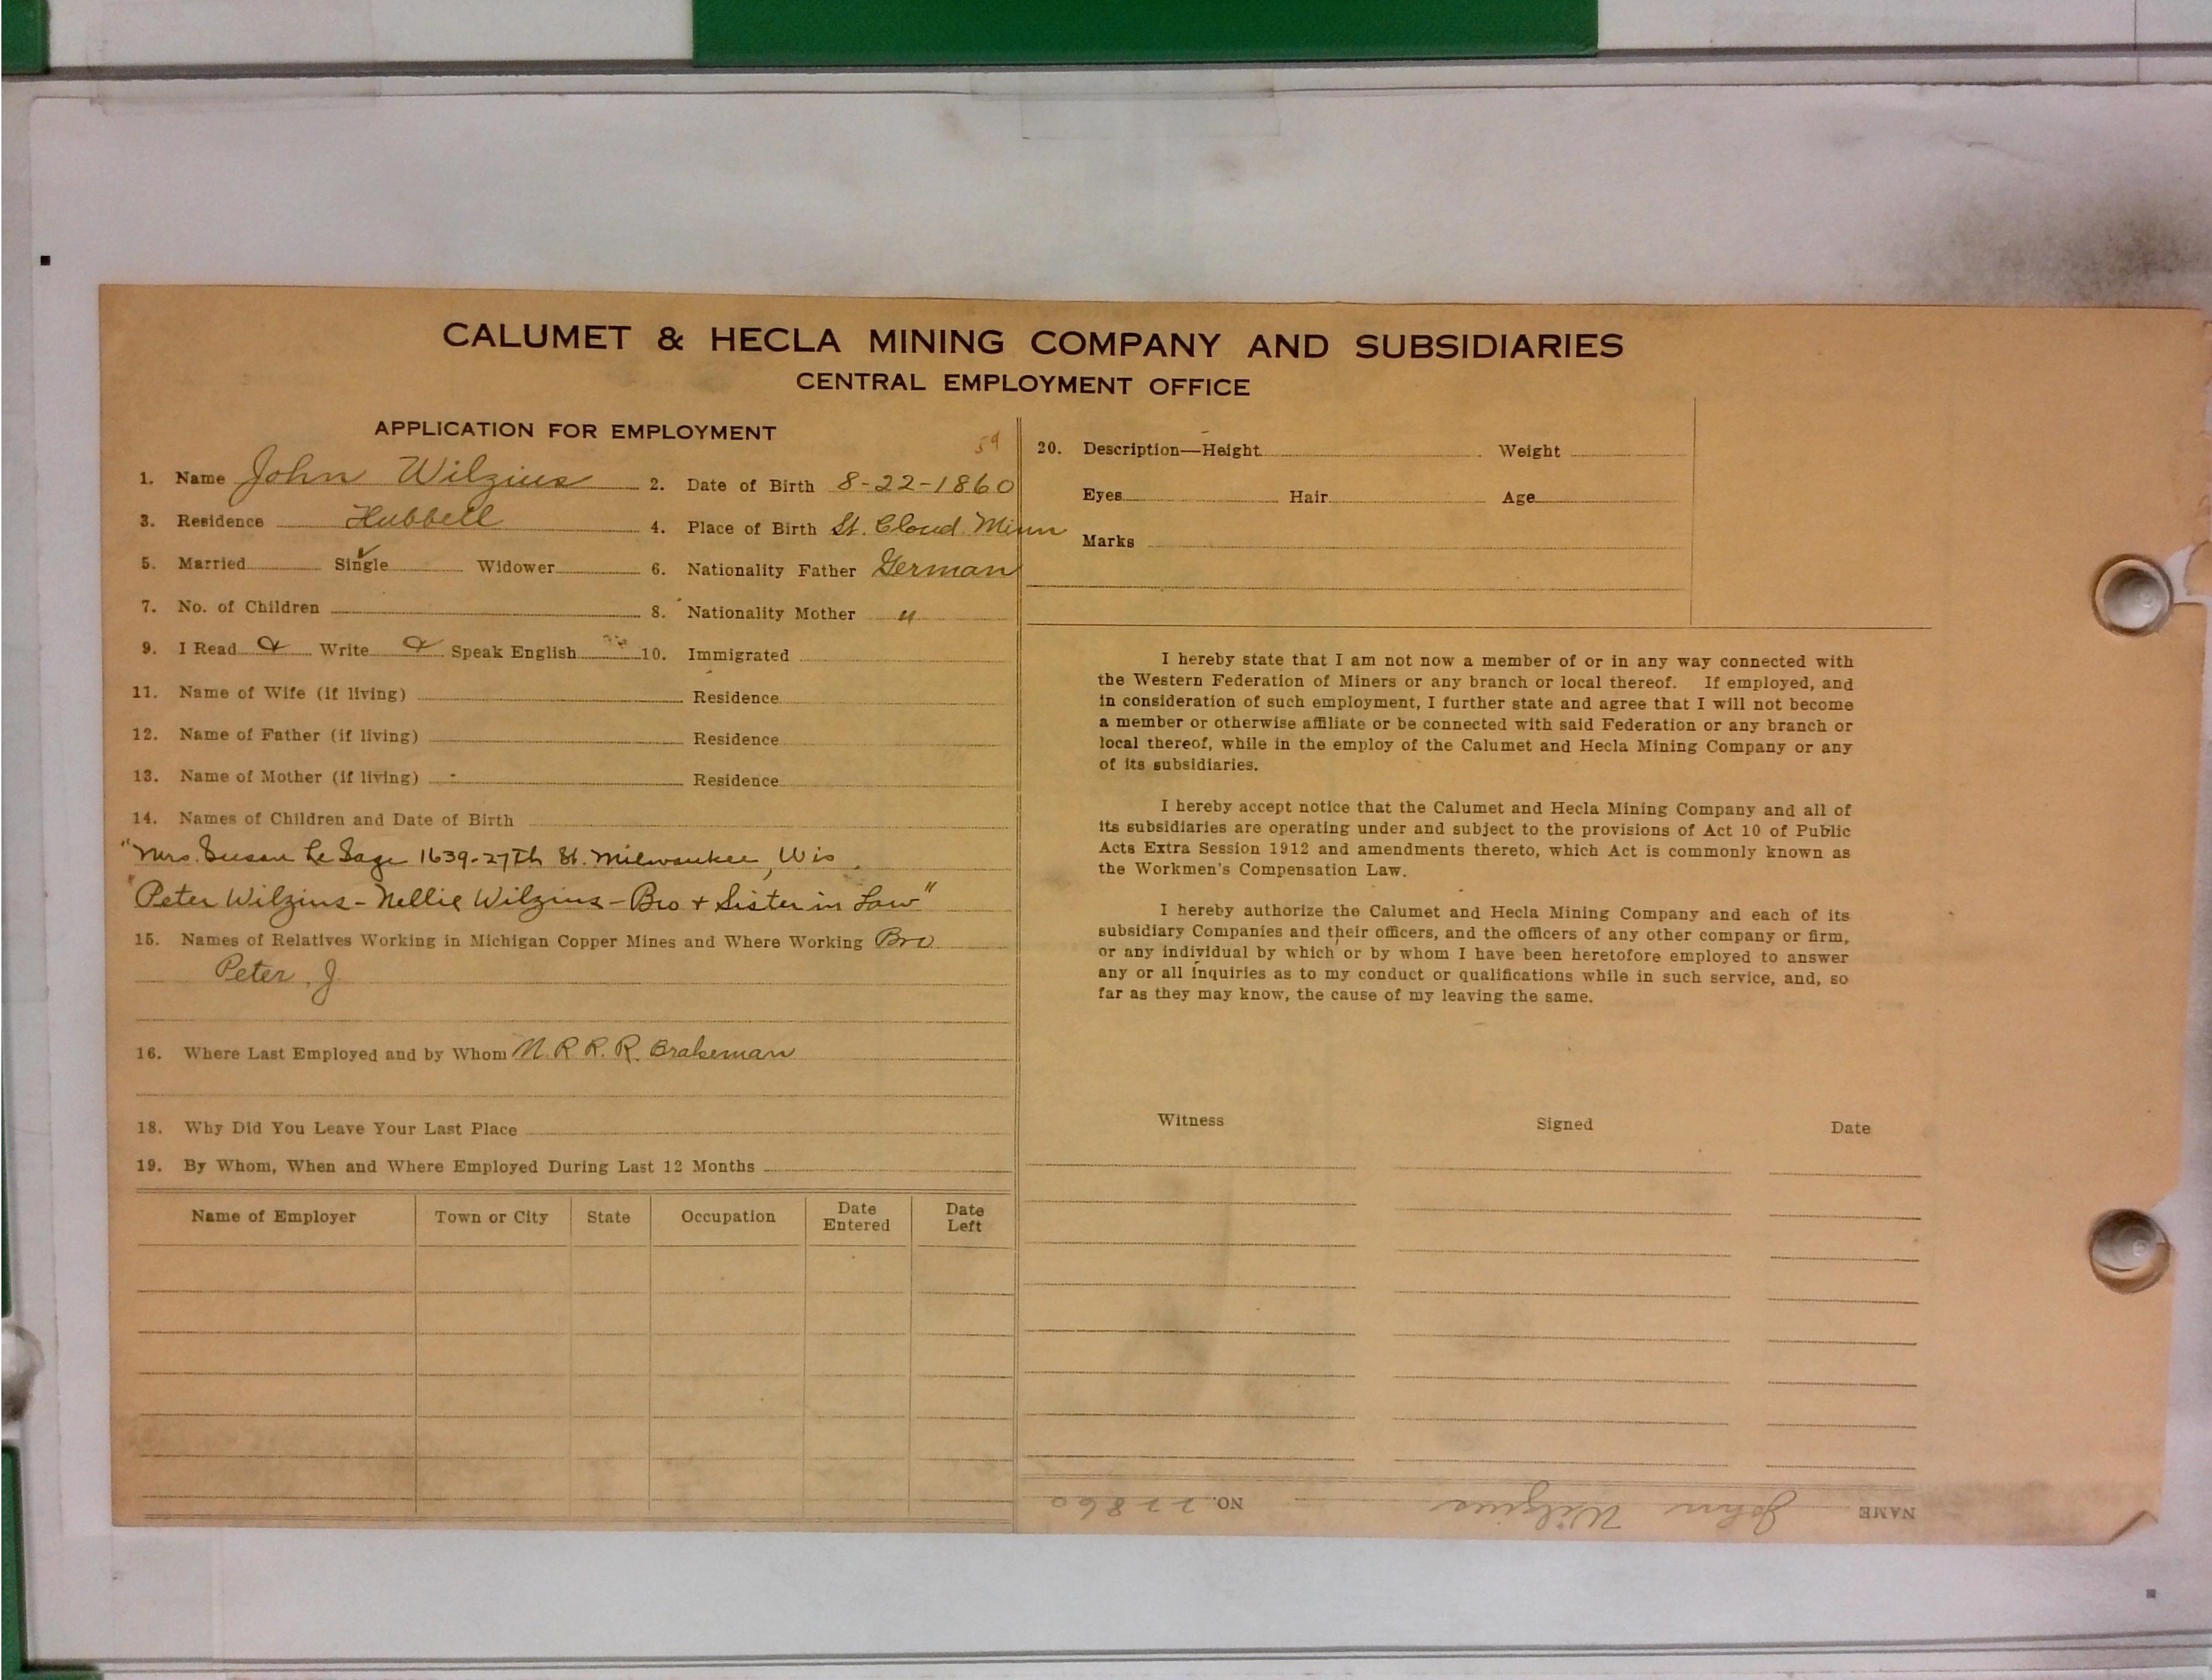 CALUMET & HECLA MINING COMPANY AND SUBSIDIARIES
CENTRAL EMPLOYMENT OFFICE
APPLICATION FOR EMPLOYMENT
59
1. Name John Wilzius 2. Date of Birth 8-22-1860
3. Residence Hubbell 4. Place of Birth St. Cloud Minn
5. Married Single ✓ Widower 6. Nationality Father German
7. No. of Children 8. Nationality Mother "
9. I Read & Write & Speak English 10. Immigrated
11. Name of Wife (if living) Residence
12. Name of Father (if living) Residence
13. Name of Mother (if living) - Residence
14. Names of Children and Date of Birth
"Mrs. Susan Le Sage 1639-27th St. Milwaukee, Wis.
"Peter Wilzius - Nellie Wilzius - Bro + Sister in Law"
15. Names of Relatives Working in Michigan Copper Mines and Where Working Bro
Peter J
16. Where Last Employed and by Whom M. R R. R. Brakeman
18. Why Did You Leave Your Last Place
19. By Whom, When and Where Employed During Last 12 Months
Name of Employer Town or City State Occupation Date Entered Date Left
20. Description—Height Weight
Eyes Hair Age
Marks
I hereby state that I am not now a member of or in any way connected with
the Western Federation of Miners or any branch or local thereof. If employed, and
in consideration of such employment, I further state and agree that I will not become
a member or otherwise affiliate or be connected with said Federation or any branch or
local thereof, while in the employ of the Calumet and Hecla Mining Company or any
of its subsidiaries.
I hereby accept notice that the Calumet and Hecla Mining Company and all of
its subsidiaries are operating under and subject to the provisions of Act 10 of Public
Acts Extra Session 1912 and amendments thereto, which Act is commonly known as
the Workmen's Compensation Law.
I hereby authorize the Calumet and Hecla Mining Company and each of its
subsidiary Companies and their officers, and the officers of any other company or firm,
or any individual by which or by whom I have been heretofore employed to answer
any or all inquiries as to my conduct or qualifications while in such service, and, so
far as they may know, the cause of my leaving the same.
Witness Signed Date
NAME John Wilzius NO. 22860